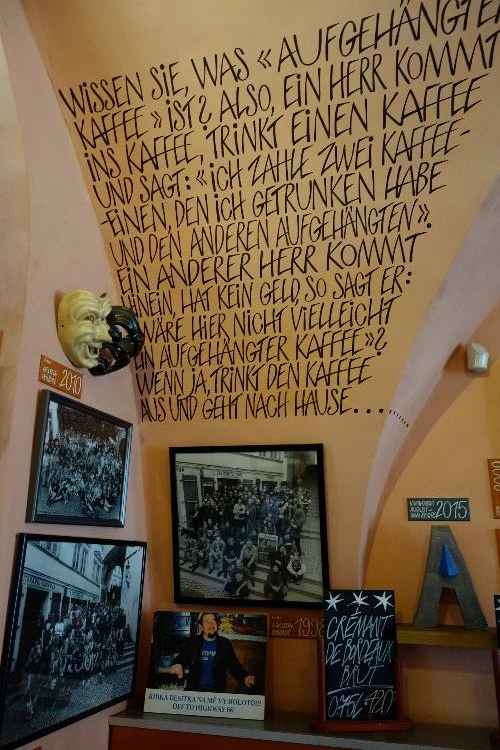 WISSEN SIE, WAS « AUFGEHÄNGTER
KAFFEE » IST? ALSO, EIN HERR KOMMT
INS KAFFEE, TRINKT EINEN KAFFEE
UND SAGT: « ICH ZAHLE ZWEI KAFFEE-
EINEN, DEN ICH GETRUNKEN HABE
UND DEN ANDEREN AUFGEHÄNGTEN ».
EIN ANDERER HERR KOMMT
HINEIN, HAT KEIN GELD, SO SAGT ER:
« WÄRE HIER NICHT VIELLEICHT
EIN AUFGEHÄNGTER KAFFEE »?
WENN JA, TRINKT DEN KAFFEE
AUS UND GEHT NACH HAUSE....
2010
2015
1998
CRÉMANT
DE BORDEAUX
BRUT
0.75L 420
ŘÍDKÁ DESÍTKA NA MĚ VYHOLOTO!!!
OFF TO HIGHWAY 66
A